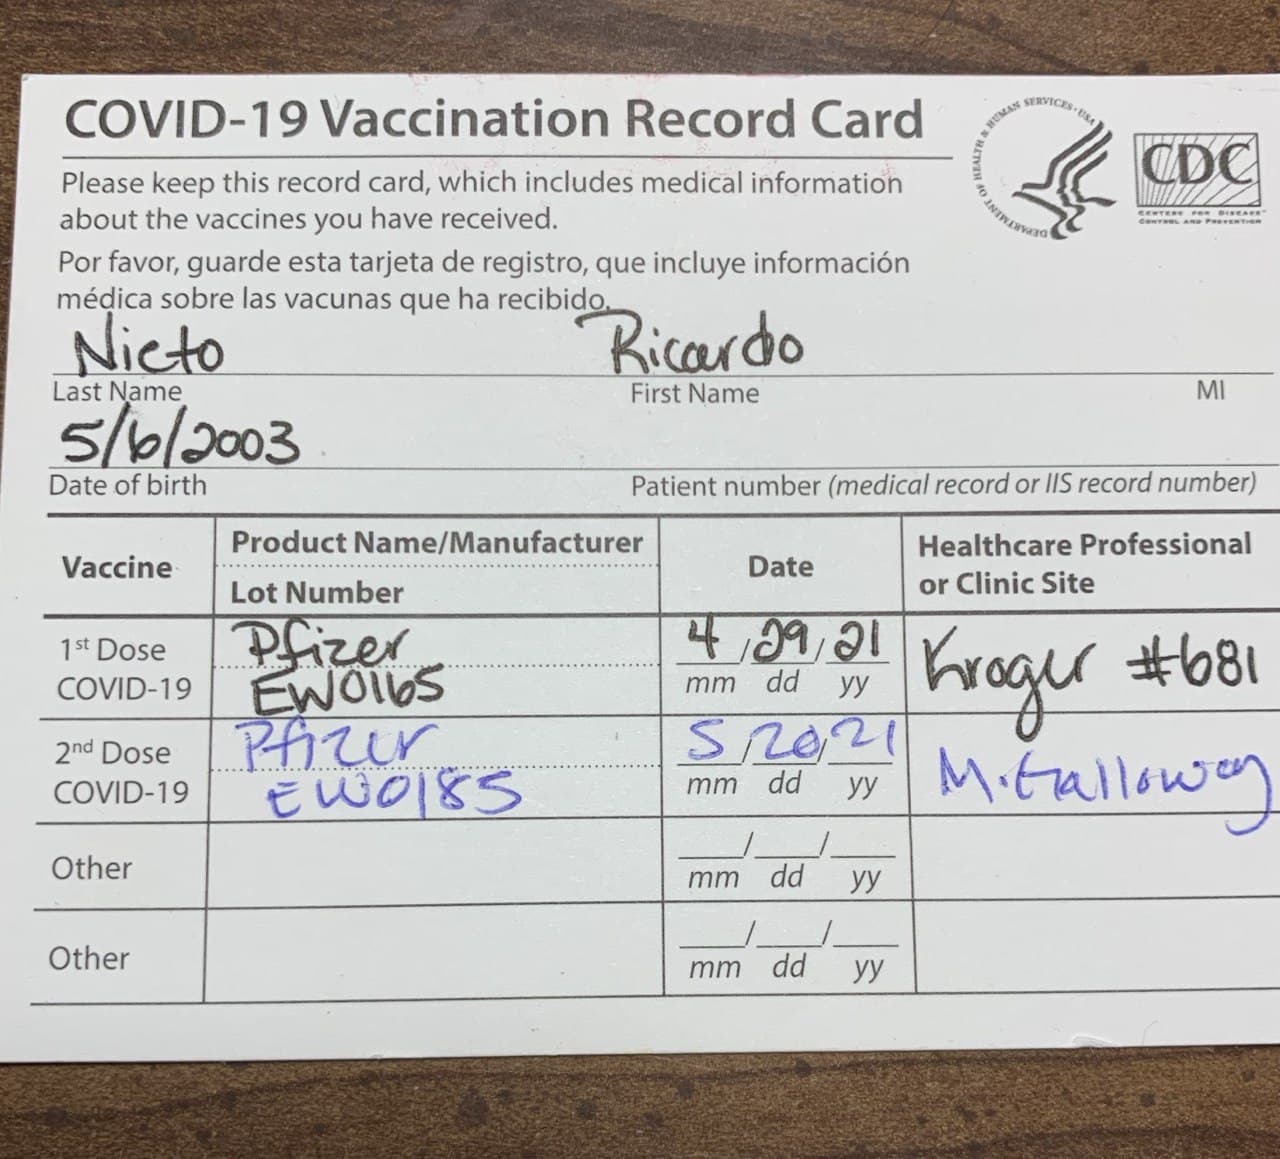 COVID-19 Vaccination Record Card
DEPARTMENT OF HEALTH & HUMAN SERVICES · USA
CDC
CENTERS FOR DISEASE™
CONTROL AND PREVENTION
Please keep this record card, which includes medical information
about the vaccines you have received.
Por favor, guarde esta tarjeta de registro, que incluye información
médica sobre las vacunas que ha recibido.
Nieto Ricardo
Last Name First Name MI
5/6/2003
Date of birth Patient number (medical record or IIS record number)
Vaccine
Product Name/Manufacturer
Lot Number
Date
Healthcare Professional
or Clinic Site
1st Dose
COVID-19
Pfizer
EW0165
4/29/21
mm dd yy
Kroger #681
2nd Dose
COVID-19
Pfizer
EW0185
5/20/21
mm dd yy
M. Galloway
Other
___/___/___
mm dd yy
Other
___/___/___
mm dd yy